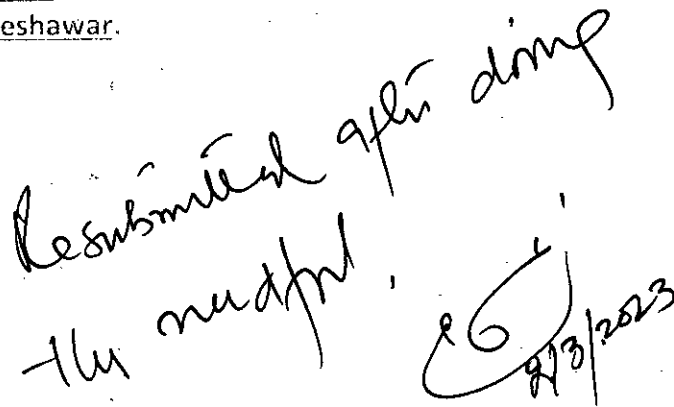 eshawar.
Resubmitted after doing
the needful.
2/3/2023